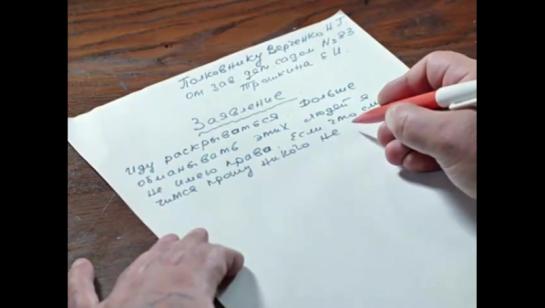 Полковнику Верченко Н Г
от зав дет садом №83
Трошкина Е И.
Заявление
Иду раскрываться Больше
обманывать этих людей я
не имею права. Если что слу
чится прошу никого не